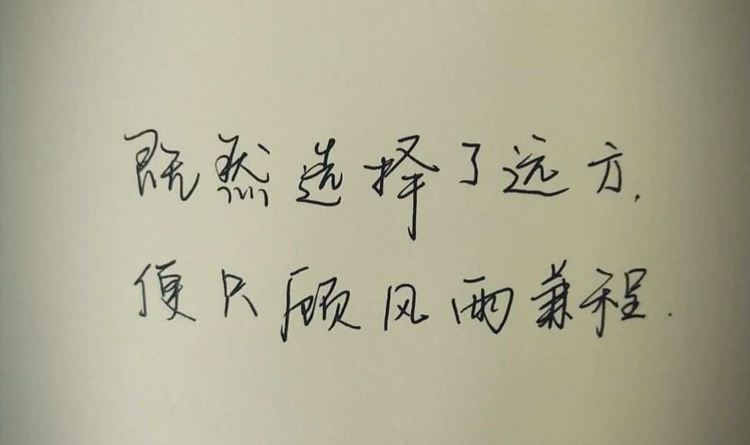 既然选择了远方,
便只顾风雨兼程.